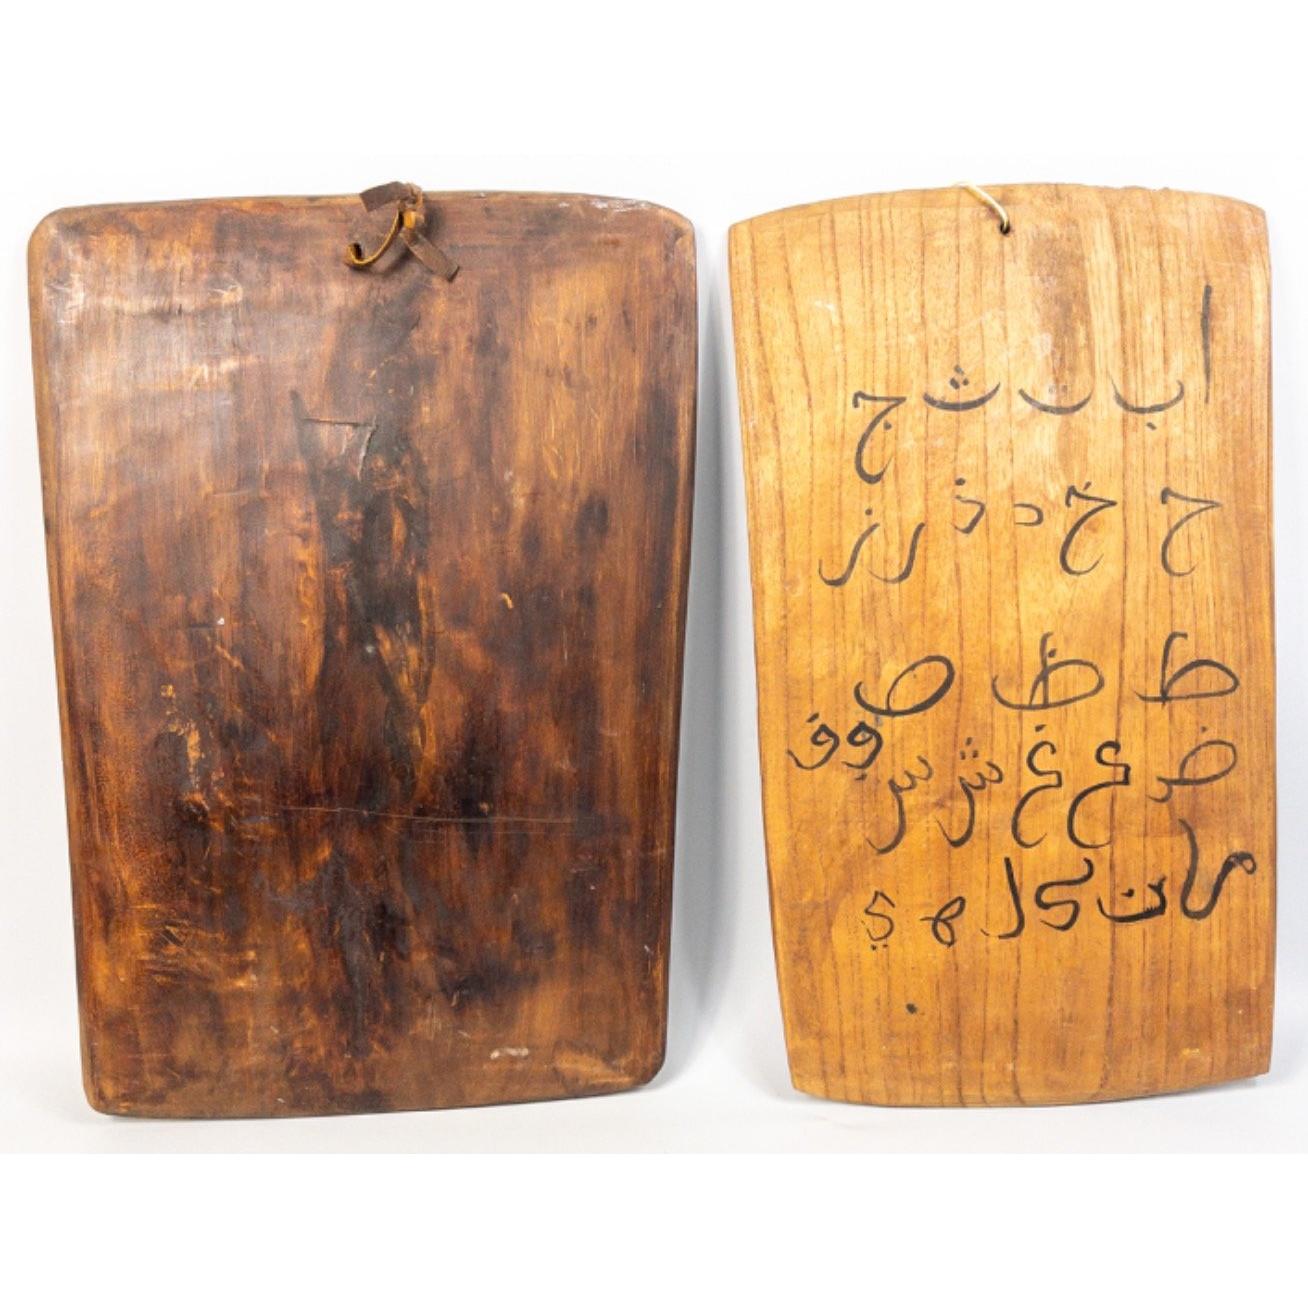 ا ب ت ث ج
ح خ د ذ ر ز
ط ظ ص
ض ع غ ش س ڢ ف
م ن ك ل ه ي